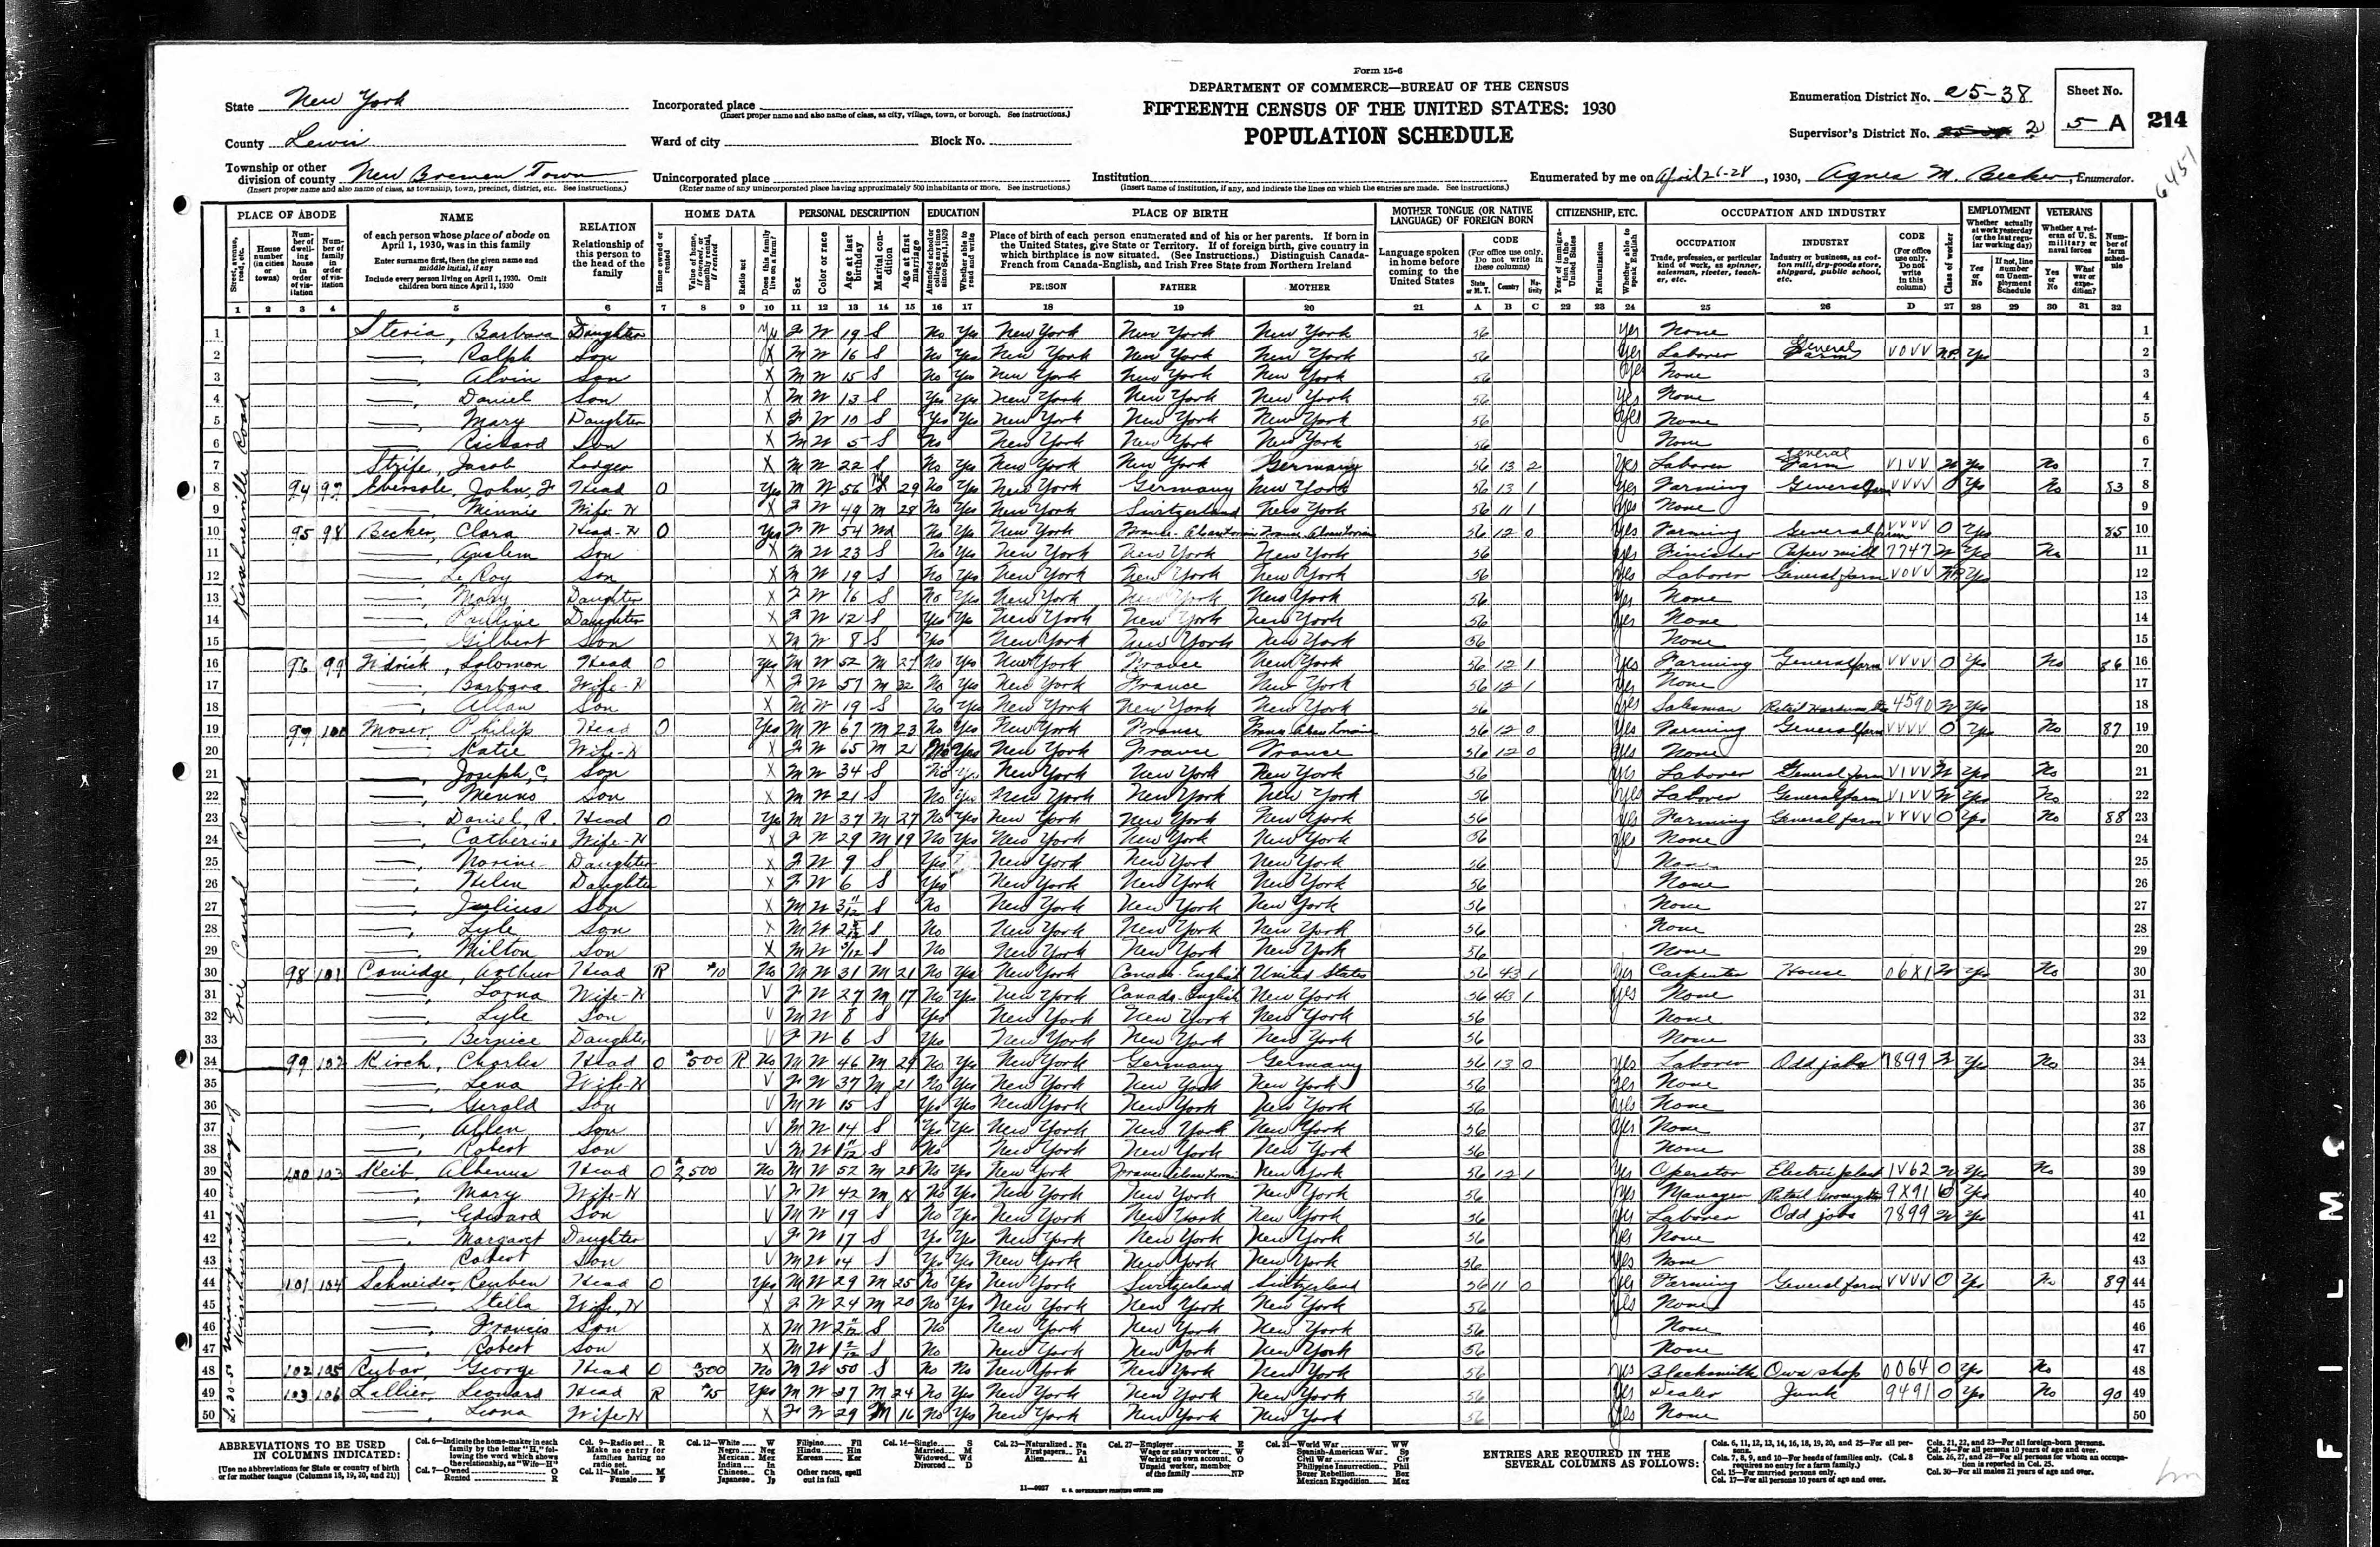 Form 15-6
DEPARTMENT OF COMMERCE—BUREAU OF THE CENSUS
FIFTEENTH CENSUS OF THE UNITED STATES: 1930
POPULATION SCHEDULE
State New York
County Lewis
Township or other division of county New Bremen Town
(Insert proper name and also name of class, as township, town, precinct, district, etc. See instructions.)
Incorporated place
(Insert proper name and also name of class, as city, village, town, or borough. See instructions.)
Ward of city Block No.
Unincorporated place
(Enter name of any unincorporated place having approximately 500 inhabitants or more. See instructions.)
Institution
(Insert name of institution, if any, and indicate the lines on which the entries are made. See instructions.)
Enumeration District No. 25-38
Supervisor's District No. 2
Sheet No.
5 A
214
6451
Enumerated by me on April 26-28, 1930, Agnes M. Becker, Enumerator.
PLACE OF ABODE
NAME
of each person whose place of abode on April 1, 1930, was in this family
Enter surname first, then the given name and middle initial, if any
Include every person living on April 1, 1930. Omit children born since April 1, 1930
RELATION
Relationship of this person to the head of the family
HOME DATA
PERSONAL DESCRIPTION
EDUCATION
PLACE OF BIRTH
Place of birth of each person enumerated and of his or her parents. If born in the United States, give State or Territory. If of foreign birth, give country in which birthplace is now situated. (See Instructions.) Distinguish Canada-French from Canada-English, and Irish Free State from Northern Ireland
PERSON FATHER MOTHER
MOTHER TONGUE (OR NATIVE LANGUAGE) OF FOREIGN BORN
Language spoken in home before coming to the United States
CODE
(For office use only. Do not write in these columns)
CITIZENSHIP, ETC.
OCCUPATION AND INDUSTRY
OCCUPATION
Trade, profession, or particular kind of work, as spinner, salesman, riveter, teacher, etc.
INDUSTRY
Industry or business, as cotton mill, dry-goods store, shipyard, public school, etc.
CODE
(For office use only. Do not write in this column)
EMPLOYMENT
Whether actually at work yesterday (or the last regular working day)
VETERANS
Whether a veteran of U. S. military or naval forces
Number of farm schedule
1 2 3 4 5 6 7 8 9 10 11 12 13 14 15 16 17 18 19 20 21 A B C 22 23 24 25 26 D 27 28 29 30 31 32
Kirschnerville Road
Erie Canal Road
L. 30-50 Unincorporated village of Kirschnerville
1 Steria, Barbara Daughter Yes F W 19 S No Yes New York New York New York 56 Yes None 1
2 —, Ralph Son X M W 16 S No Yes New York New York New York 56 Yes Laborer General Farm VOVV NP Yes 2
3 —, Alvin Son X M W 15 S No Yes New York New York New York 56 Yes None 3
4 —, Daniel Son X M W 13 S Yes Yes New York New York New York 56 Yes None 4
5 —, Mary Daughter X F W 10 S Yes Yes New York New York New York 56 Yes None 5
6 —, Richard Son X M W 5 S No New York New York New York 56 None 6
7 Strife, Jacob Lodger X M W 22 S No Yes New York New York Germany 56 13 2 Yes Laborer General Farm VIVV W Yes No 7
8 94 97 Ebersole, John, J Head O Yes M W 56 M 29 No Yes New York Germany New York 56 13 1 Yes Farming General farm VVVV O Yes No 83 8
9 —, Minnie Wife-H X F W 49 M 28 No Yes New York Switzerland New York 56 11 1 Yes None 9
10 95 98 Becker, Clara Head-H O Yes F W 54 Wd No Yes New York France-Alsace Lorraine France-Alsace Lorraine 56 12 0 Yes Farming General farm VVVV O Yes 85 10
11 —, Anslem Son X M W 23 S No Yes New York New York New York 56 Yes Finisher Paper mill 7747 W Yes No 11
12 —, LeRoy Son X M W 19 S No Yes New York New York New York 56 Yes Laborer General farm VOVV NP Yes 12
13 —, Mary Daughter X F W 16 S No Yes New York New York New York 56 Yes None 13
14 —, Pauline Daughter X F W 12 S Yes Yes New York New York New York 56 Yes None 14
15 —, Gilbert Son X M W 8 S Yes New York New York New York 56 None 15
16 96 99 Widrick, Solomon Head O Yes M W 52 M 27 No Yes New York France New York 56 12 1 Yes Farming General farm VVVV O Yes No 86 16
17 —, Barbara Wife-H X F W 57 M 32 No Yes New York France New York 56 12 1 Yes None 17
18 —, Allan Son X M W 19 S No Yes New York New York New York 56 Yes Salesman Retail Hardware Sto 4590 W Yes 18
19 97 100 Moser, Philip Head O Yes M W 67 M 23 No Yes New York France France Alsace Lorraine 56 12 0 Yes Farming General farm VVVV O Yes No 87 19
20 —, Katie Wife-H X F W 65 M 21 No Yes New York France France 56 12 0 Yes None 20
21 —, Joseph, C. Son X M W 34 S No Yes New York New York New York 56 Yes Laborer General farm VIVV W Yes No 21
22 —, Menno Son X M W 21 S No Yes New York New York New York 56 Yes Laborer General farm VIVV W Yes No 22
23 —, Daniel, R. Head O Yes M W 37 M 27 No Yes New York New York New York 56 Yes Farming General farm VVVV O Yes No 88 23
24 —, Catherine Wife-H X F W 29 M 19 No Yes New York New York New York 56 Yes None 24
25 —, Norine Daughter X F W 9 S Yes New York New York New York 56 None 25
26 —, Helen Daughter X F W 6 S Yes New York New York New York 56 None 26
27 —, Julius Son X M W 3 11/12 S No New York New York New York 56 None 27
28 —, Lyle Son X M W S No New York New York New York 56 None 28
29 —, Milton Son X M W S No New York New York New York 56 None 29
30 98 101 Camidge, Arthur Head R $10 No M W 31 M 21 No Yes New York Canada-English United States 56 43 1 Yes Carpenter House 06X1 W Yes No 30
31 —, Lorna Wife-H V F W 27 M 17 No Yes New York Canada-English New York 56 43 1 Yes None 31
32 —, Lyle Son V M W 8 S Yes New York New York New York 56 None 32
33 —, Bernice Daughter V F W 6 S Yes New York New York New York 56 None 33
34 99 102 Kirch, Charles Head O $500 R No M W 46 M 29 No Yes New York Germany Germany 56 13 0 Yes Laborer Odd jobs 7899 W Yes No 34
35 —, Lena Wife-H V F W 37 M 21 No Yes New York New York New York 56 Yes None 35
36 —, Gerald Son V M W 15 S Yes Yes New York New York New York 56 Yes None 36
37 —, Allen Son V M W 14 S Yes Yes New York New York New York 56 Yes None 37
38 —, Robert Son V M W 1 11/12 S No New York New York New York 56 None 38
39 100 103 Keib, Albenus Head O $2500 No M W 52 M 28 No Yes New York France Alsace Lorraine New York 56 12 1 Yes Operator Electric plant 1V62 W Yes No 39
40 —, Mary Wife-H V F W 42 M 18 No Yes New York New York New York 56 Yes Manager Retail Grocery Sto 9X91 O Yes 40
41 —, Edward Son V M W 19 S No Yes New York New York New York 56 Yes Laborer Odd jobs 7899 W Yes 41
42 —, Margaret Daughter V F W 17 S Yes Yes New York New York New York 56 Yes None 42
43 —, Robert Son V M W 14 S Yes Yes New York New York New York 56 Yes None 43
44 101 104 Schneider, Reuben Head O Yes M W 29 M 25 No Yes New York Switzerland Switzerland 56 11 0 Yes Farming General farm VVVV O Yes No 89 44
45 —, Stella Wife, H X F W 24 M 20 No Yes New York New York New York 56 Yes None 45
46 —, Francis Son X M W 2 11/12 S No New York New York New York 56 None 46
47 —, Robert Son X M W S No New York New York New York 56 None 47
48 102 105 George Head O $500 No M W 50 S No No New York New York New York 56 Yes Blacksmith Own shop 0064 O Yes No 48
49 103 106 Lallier, Leonard Head R $15 Yes M W 37 M 24 No Yes New York New York New York 56 Yes Dealer Junk 9491 O Yes No 90 49
50 —, Leona Wife-H X F W 29 M 16 No Yes New York New York New York 56 Yes None 50
ABBREVIATIONS TO BE USED IN COLUMNS INDICATED:
[Use no abbreviations for State or country of birth or for mother tongue (Columns 18, 19, 20, and 21)]
Col. 6—Indicate the home-maker in each family by the letter "H," following the word which shows the relationship, as "Wife—H"
Col. 7—Owned O
Rented R
Col. 9—Radio set R
Make no entry for families having no radio set.
Col. 11—Male M
Female F
Col. 12—White W
Negro Neg
Mexican Mex
Indian In
Chinese Ch
Japanese Jp
Filipino Fil
Hindu Hin
Korean Kor
Other races, spell out in full
Col. 14—Single S
Married M
Widowed Wd
Divorced D
Col. 23—Naturalized Na
First papers Pa
Alien Al
Col. 27—Employer E
Wage or salary worker W
Working on own account O
Unpaid worker, member of the family NP
Col. 31—World War WW
Spanish-American War Sp
Civil War Civ
Philippine Insurrection Phil
Boxer Rebellion Box
Mexican Expedition Mex
ENTRIES ARE REQUIRED IN THE SEVERAL COLUMNS AS FOLLOWS:
Cols. 6, 11, 12, 13, 14, 16, 18, 19, 20, and 25—For all persons.
Cols. 7, 8, 9, and 10—For heads of families only. (Col. 8 requires no entry for a farm family.)
Col. 15—For married persons only.
Col. 17—For all persons 10 years of age and over.
Cols. 21, 22, and 23—For all foreign-born persons.
Col. 24—For all persons 10 years of age and over.
Cols. 26, 27, and 28—For all persons for whom an occupation is reported in Col. 25.
Col. 30—For all males 21 years of age and over.
11—9927 U. S. GOVERNMENT PRINTING OFFICE
FILM